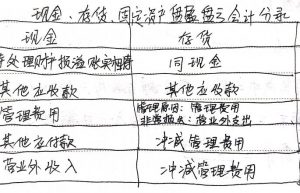 现金、存货、固定资产盘盈盘亏会计分录
现金 存货
待处理财产损溢账实相符 同现金
其他应收款 其他应收款
管理费用 管理原因：管理费用
非常损失：营业外支出
其他应付款 冲减管理费用
营业外收入 冲减管理费用